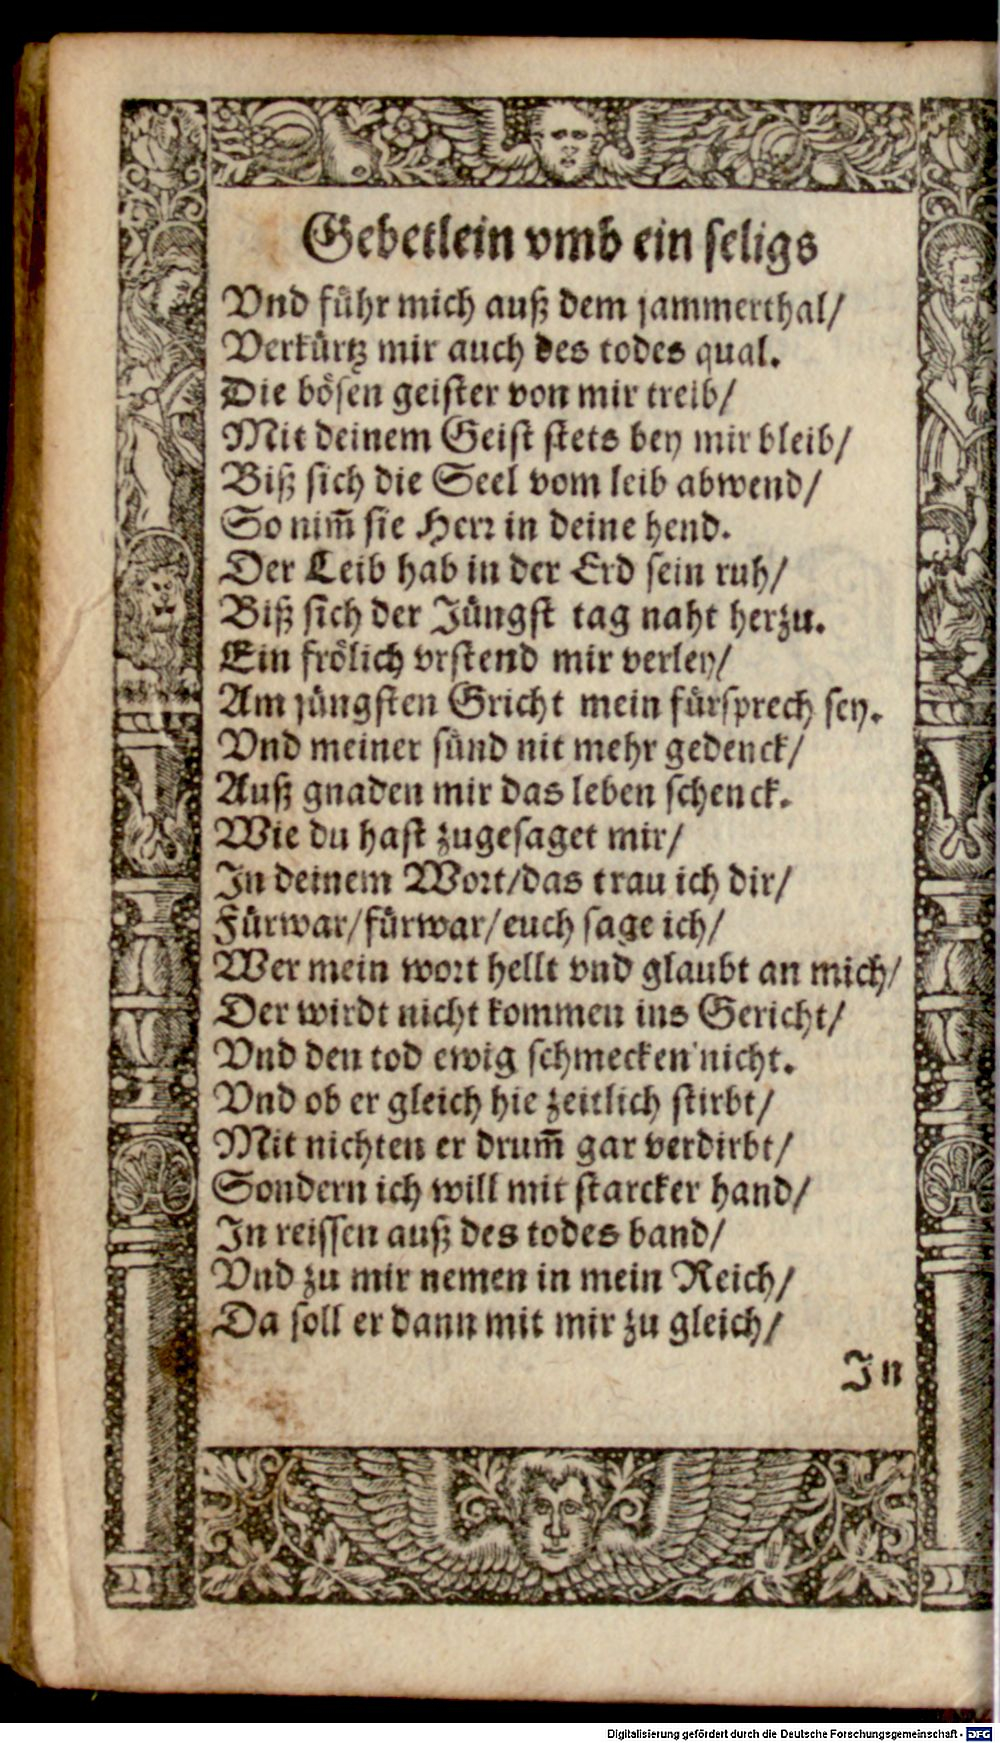 Gebetlein vmb ein seligs
Vnd führ mich auß dem jammerthal/
Verkürtz mir auch des todes qual.
Die bösen geister von mir treib/
Mit deinem Geist stets bey mir bleib/
Biß sich die Seel vom leib abwend/
So nim̃ sie Herr in deine hend.
Der Leib hab in der Erd sein ruh/
Biß sich der Jüngst tag naht herzu.
Ein frölich vrstend mir verley/
Am jüngsten Gricht mein fürsprech sey.
Vnd meiner sünd nit mehr gedenck/
Auß gnaden mir das leben schenck.
Wie du hast zugesaget mir/
In deinem Wort/das trau ich dir/
Fürwar/fürwar/euch sage ich/
Wer mein wort hellt vnd glaubt an mich/
Der wirdt nicht kommen ins Gericht/
Vnd den tod ewig schmecken nicht.
Vnd ob er gleich hie zeitlich stirbt/
Mit nichten er drum̃ gar verdirbt/
Sondern ich will mit starcker hand/
In reissen auß des todes band/
Vnd zu mir nemen in mein Reich/
Da soll er dann mit mir zu gleich/
In
Digitalisierung gefördert durch die Deutsche Forschungsgemeinschaft - DFG